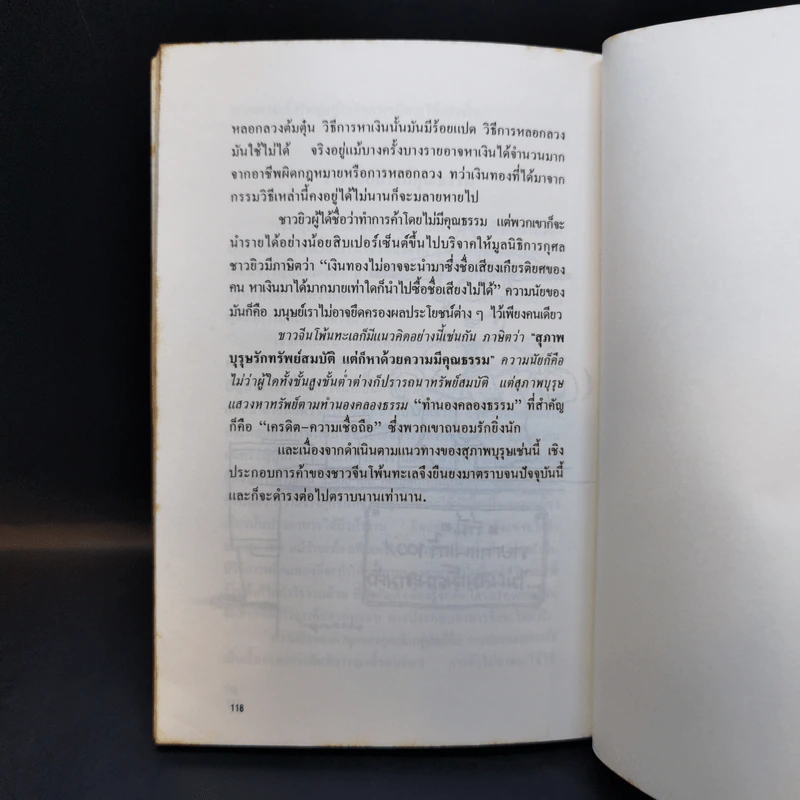 หลอกลวงต้มตุ๋น วิธีการหาเงินนั้นมันมีร้อยแปด วิธีการหลอกลวง
มันใช้ไม่ได้ จริงอยู่แม้บางครั้งบางรายอาจหาเงินได้จำนวนมาก
จากอาชีพผิดกฎหมายหรือการหลอกลวง ทว่าเงินทองที่ได้มาจาก
กรรมวิธีเหล่านี้คงอยู่ได้ไม่นานก็จะมลายหายไป
ชาวยิวผู้ได้ชื่อว่าทำการค้าโดยไม่มีคุณธรรม แต่พวกเขาก็จะ
นำรายได้อย่างน้อยสิบเปอร์เซ็นต์ขึ้นไปบริจาคให้มูลนิธิการกุศล
ชาวยิวมีภาษิตว่า “เงินทองไม่อาจจะนำมาซึ่งชื่อเสียงเกียรติยศของ
คน หาเงินมาได้มากมายเท่าใดก็นำไปซื้อชื่อเสียงไม่ได้” ความนัยของ
มันก็คือ มนุษย์เราไม่อาจยึดครองผลประโยชน์ต่าง ๆ ไว้เพียงคนเดียว
ชาวจีนโพ้นทะเลก็มีแนวคิดอย่างนี้เช่นกัน ภาษิตว่า “สุภาพ
บุรุษรักทรัพย์สมบัติ แต่ก็หาด้วยความมีคุณธรรม” ความนัยก็คือ
ไม่ว่าผู้ใดทั้งชั้นสูงชั้นต่ำต่างก็ปรารถนาทรัพย์สมบัติ แต่สุภาพบุรุษ
แสวงหาทรัพย์ตามทำนองคลองธรรม “ทำนองคลองธรรม” ที่สำคัญ
ก็คือ “เครดิต-ความเชื่อถือ” ซึ่งพวกเขาถนอมรักยิ่งนัก
และเนื่องจากดำเนินตามแนวทางของสุภาพบุรุษเช่นนี้ เชิง
ประกอบการค้าของชาวจีนโพ้นทะเลจึงยืนยงมาตราบจนปัจจุบันนี้
และก็จะดำรงต่อไปตราบนานเท่านาน.
118